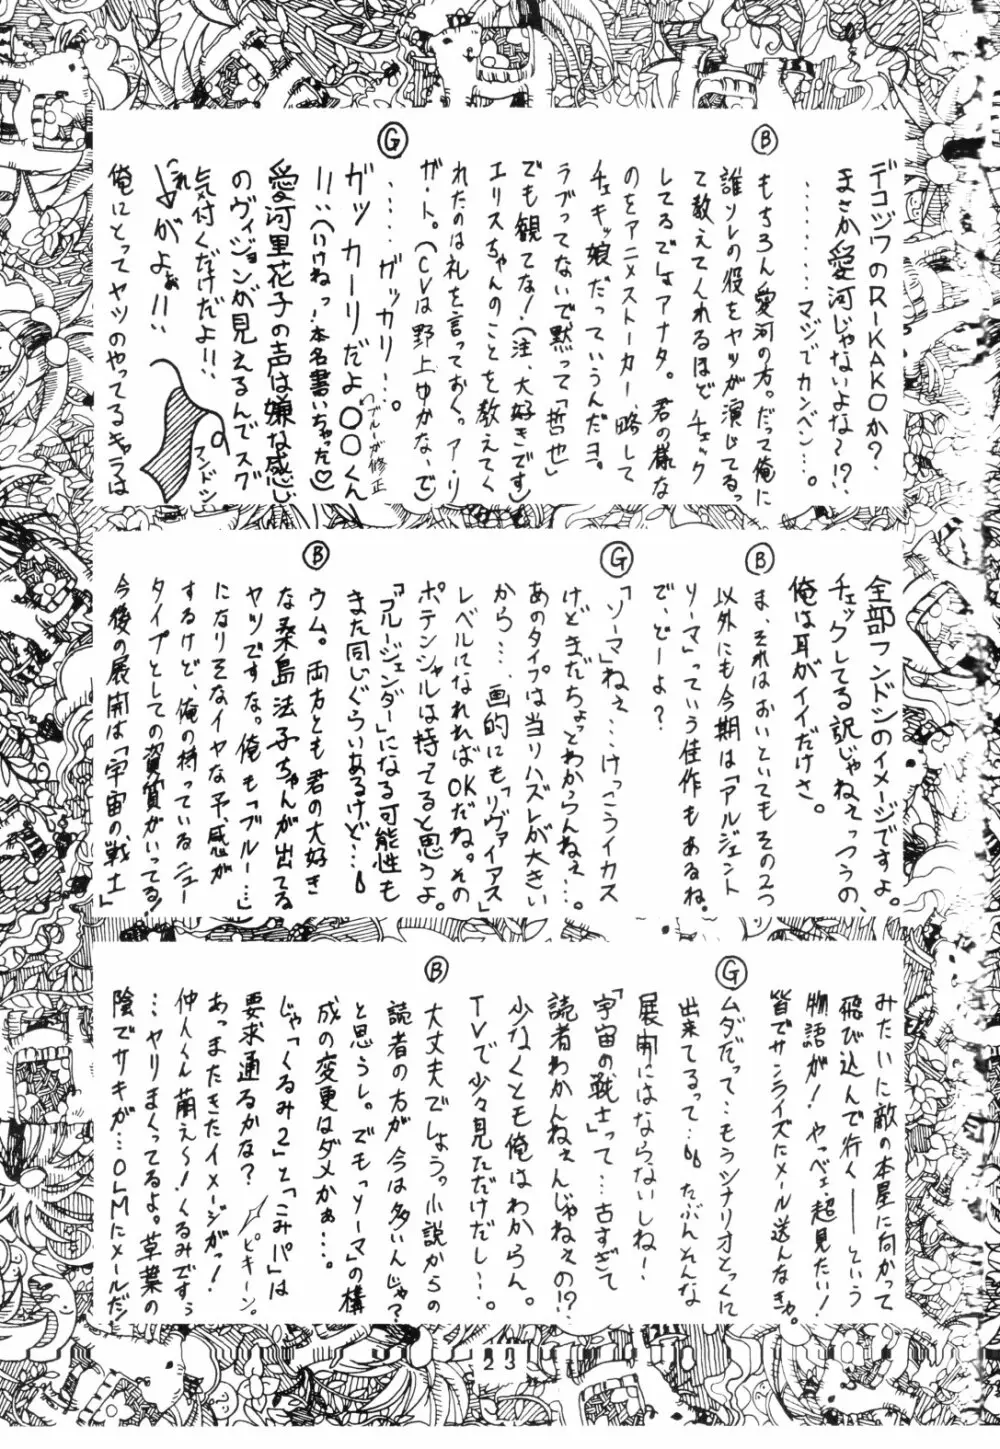 デコジワのRIKAKOか?
まさか愛河じゃないよな?!?
………マジでカンベン…。
Ⓑ
もちろん愛河の方。だって俺に
誰ソレの役をヤツが演じてるっ
て教えてくれるほどチェック
してるでしょアナタ。君の様な
のをアニメストーカー、略して
チェキッ娘だっていうんだヨ。
ラブってないで黙って「哲也」
でも観てな!(注、大好きです)
エリスちゃんのことを教えてく
れたのは礼を言っておく。ア・リ
ガ・ト。(CVは野上ゆかな、で)
Ⓖ
……ガッカリ…。
ガッカーリだよ○○くん
へブルーが修正
!!(いけねっ!本名書いちゃった♡)
愛河里花子の声は嫌な感じ
のヴィジョンが見えるんでスグ
気付くだけだよ!!
フンドシ
これ
がよぉ!!
俺にとってヤツのやってるキャラは
全部フンドシのイメージですよ。
チェックしてる訳じゃねぇっつうの、
俺は耳がイイだけさ。
Ⓑ
ま、それはおいといてもその2つ
以外にも今期は「アルジェント
ソーマ」っていう佳作もあるね。
で、どーよ?
Ⓖ
「ソーマ」ねぇ…けっこうイカス
けどまだちょっとわからんねぇ…。
あのタイプは当りハズレが大きい
から…、画的にも「リヴァイアス」
レベルになれればOKだね。その
ポテンシャルは持ってると思うよ。
「ブルージェンダー」になる可能性も
また同じぐらいあるけど…。
Ⓑ
ウム。両方とも君の大好き
な桑島法子ちゃんが出てる
ヤツですな。俺も「ブルー…」
になりそなイヤな予感が
するけど、俺の持っているニュー
タイプとしての資質がいってる!
今後の展開は「宇宙の戦士」
みたいに敵の本星に向かって
飛び込んで行く――という
物語が!やっべェ超見たい!
皆でサンライズにメール送んなきゃ。
Ⓖ
ムダだって…もうシナリオとっくに
出来てるって…。たぶんそんな
展開にはならないしね!
「宇宙の戦士」って…古すぎて
読者わかんねぇんじゃねぇの!?
少なくとも俺はわからん。
TVで少々見ただけだし…。
Ⓑ
大丈夫でしょう。小説からの
読者の方が今は多いんじゃ?
と思うし。でも「ソーマ」の構
成の変更はダメかぁ…。
じゃ「くるみ2」と「こみパ」は
要求通るかな?
ピキーン。
あっまたきたイメージがっ!
仲人くん萌え～!くるみですぅ
…ヤりまくってるよ。草葉の
陰でサキが…OLMにメールだ!
23